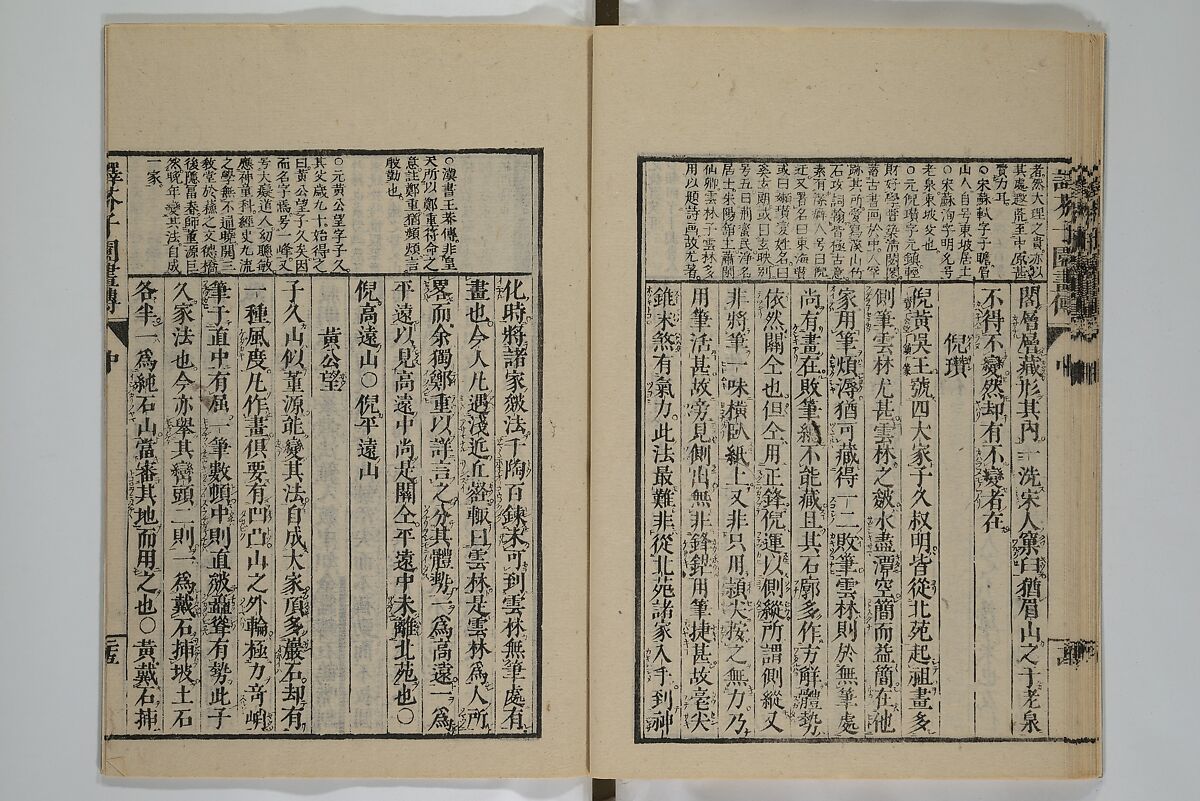 者然大理之貴亦以
其處遐荒至中原甚
費力耳
○宋蘇軾字子瞻眉
山人自号東坡居士
老泉東坡父也
○元倪瓚字元鎮輕
財好學嘗築清閟閣
蓄古書画於中人罕
迹其所嘗寫深山竹
石攻詞翰皆極古意
素有潔癖人号曰倪
迂又署名曰東海瓚
或曰嬾瓚変姓名曰
奚玄朗或曰玄暎別
号五曰荊蛮民淨名
居士朱陽館主蕭閑
仙卿雲林子雲林多
用以題詩画故尤著
閣層層藏形其内一洗宋人窠臼猶眉山之于老泉
不得不變然却有不變者在
倪瓚
倪黄吳王號四大家子久叔明皆從北苑起祖畫多
側筆雲林尤甚雲林之皴水盡潭空簡而益簡在他
家用筆煩溽猶可藏得一二敗筆雲林則於無筆處
尚有畫在敗筆總不能藏且其石廓多作方解體勢
依然關仝也但仝用正鋒倪運以側縱所謂側縱又
非將筆一味橫臥紙上又非只用頴尖按之無力乃
用筆活甚故旁見側出無非鋒鋩用筆捷甚故毫尖
錐末煞有氣力此法最難非從北苑諸家入手到神
○漢書王莽傳非皇
天所以鄭重符命之
意註鄭重猶頻煩言
殷勤也
○元黄公望字子久
其父歳九十始得之
曰黄公望子久矣因
而名字焉号一峰又
号大癡道人幼聰敏
應神童科経史九流
之學無不通暁開三
教堂於蘓之文德橋
後隱冨春師董源巨
然晩年變其法自成
一家
化時將諸家皴法千陶百鍊未可到雲林無筆處有
畫也今人凡遇淺近丘壑輙曰雲林是雲林爲人所
畧而余獨鄭重以詳言之分其體勢一爲高遠一爲
平遠以見高遠中尚是關仝平遠中未離北苑也○
倪高遠山○倪平遠山
黄公望
子久山似董源能變其法自成大家頂多巖石却有
一種風度凡作畫俱要有凹凸山之外輪極力奇峭
筆于直中有屈一筆數頓中則直皴矗聳有勢此子
久家法也今亦舉其巒頭二則一爲戴石插坡土石
各半一爲純石山當審其地而用之也○黄戴石插
譯芥子園畫傳
中